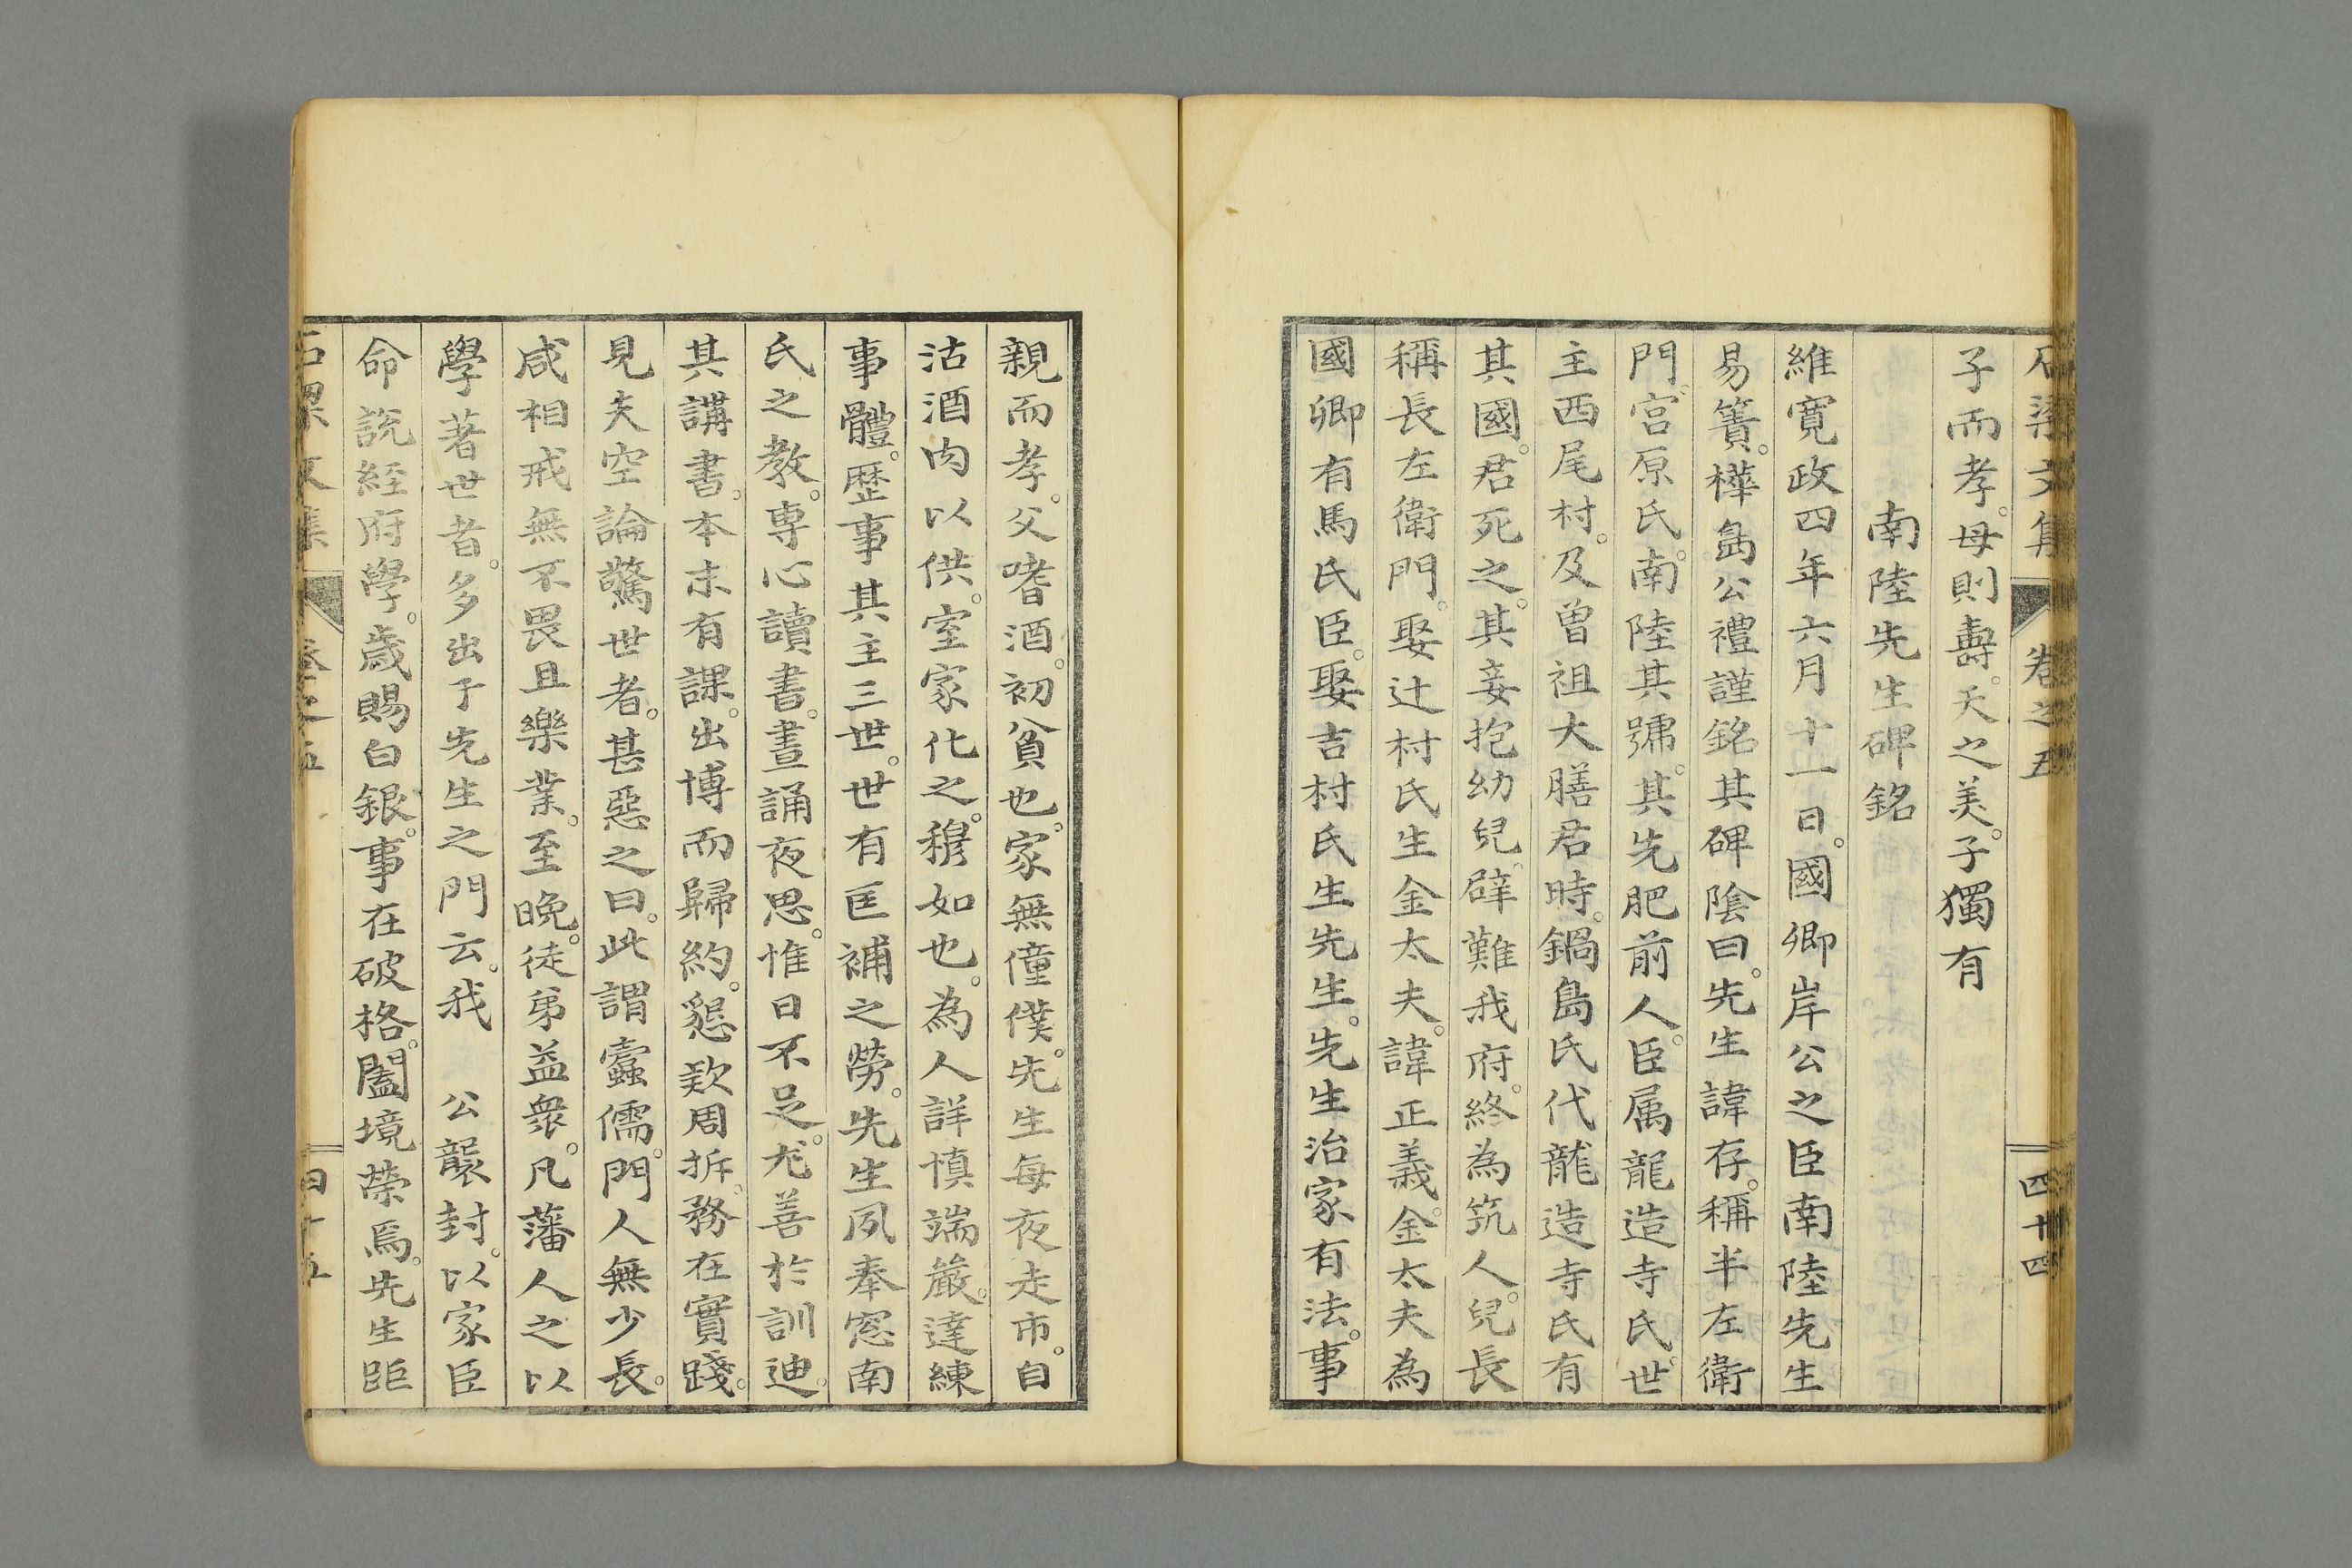 石梁文集 卷之五 四十四
子而孝。母則壽。天之美。子獨有
南陸先生碑銘
維寬政四年六月十一日。國卿岸公之臣南陸先生
易簀。樺島公禮謹銘其碑陰曰。先生諱存。稱半左衛
門。宮原氏。南陸其號。其先肥前人。臣属龍造寺氏。世
主西尾村。及曽祖大膳君時。鍋島氏代龍造寺氏有
其國。君死之。其妾抱幼兒。辟難我府。終為筑人。兒長
稱長左衛門。娶辻村氏生金太夫。諱正義。金太夫為
國卿有馬氏臣。娶吉村氏生先生。先生治家有法。事
親而孝。父嗜酒。初貧也。家無僮僕。先生每夜走市。自
沽酒肉以供。室家化之。穆如也。為人詳慎端嚴。達練
事體。歴事其主三世。世有匡補之勞。先生夙奉窓南
氏之教。専心讀書。晝誦夜思。惟日不足。尤善於訓迪。
其講書。本末有課。出博而歸約。懇欵周折。務在實踐。
見夫空論驚世者。甚惡之曰。此謂蠹儒。門人無少長。
咸相戒無不畏且樂業。至晩。徒弟益衆。凡藩人之以
學著世者。多出于先生之門云。我　公襲封。以家臣
命説經府學。歳賜白銀。事在破格。闔境榮焉。先生距
石梁文集 卷之五 四十五